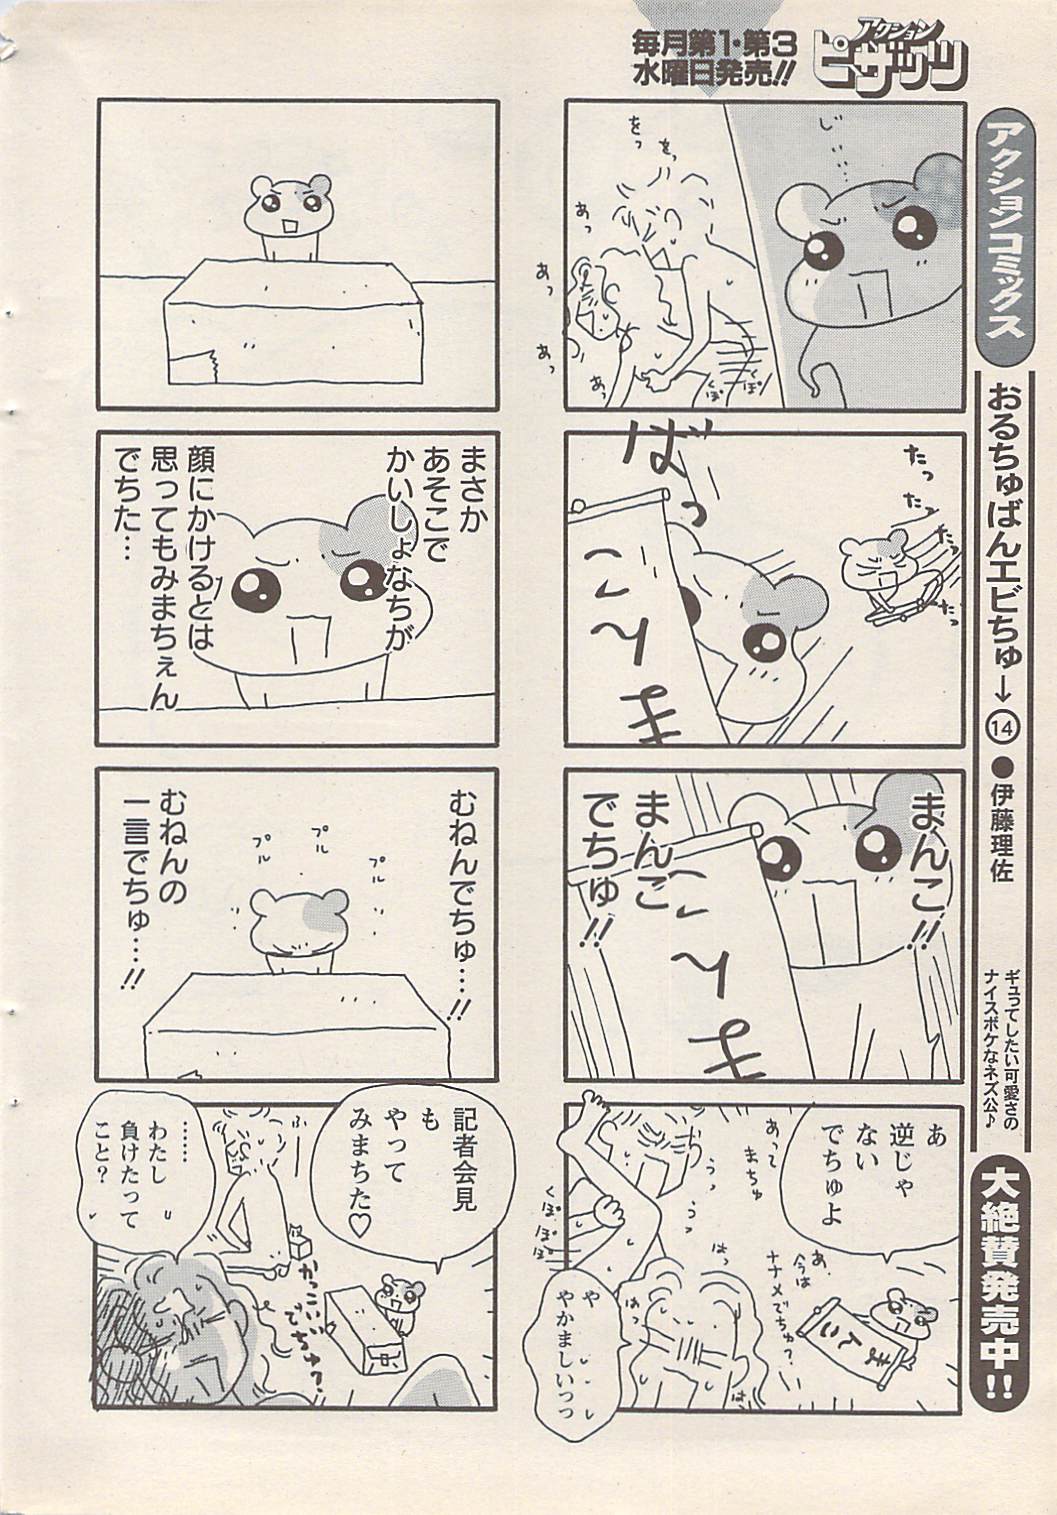 毎月第1・第3
水曜日発売!!
アクション
ピザッツ
アクションコミックス
おるちゅばんエビちゅ→⑭●伊藤理佐
ギュってしたい可愛さの
ナイスボケなネズ公♪
大絶賛発売中!!
じぃ…
をっ
をっ
あっ
あっ
あっ
あっ
くぽ
くぽ
たっ
たっ
たっ
たっ
ばっ
こ
い
ま
まんこ!!
まんこ
まんこ
でちゅ!!
こ
い
ま
あ
逆じゃ
ない
でちゅよ
あ、
今は
ナナメでちゅ?
あって
まちゅ
うっ
うっ
はっ
はっ
くぽ
ぽぽ
ぽぽ
や
やかましいっっ
まさか
あそこで
かいしょなちが
顔にかけるとは
思ってもみまちぇん
でちた…
むねんでちゅ…!!
むねんの
一言でちゅ……!!
プル
プル
プル
プル
プル
プル
記者会見
も
やって
みまちた♡
ふー
かっこいい
でちゅ?
……
わたし
負けたって
こと?